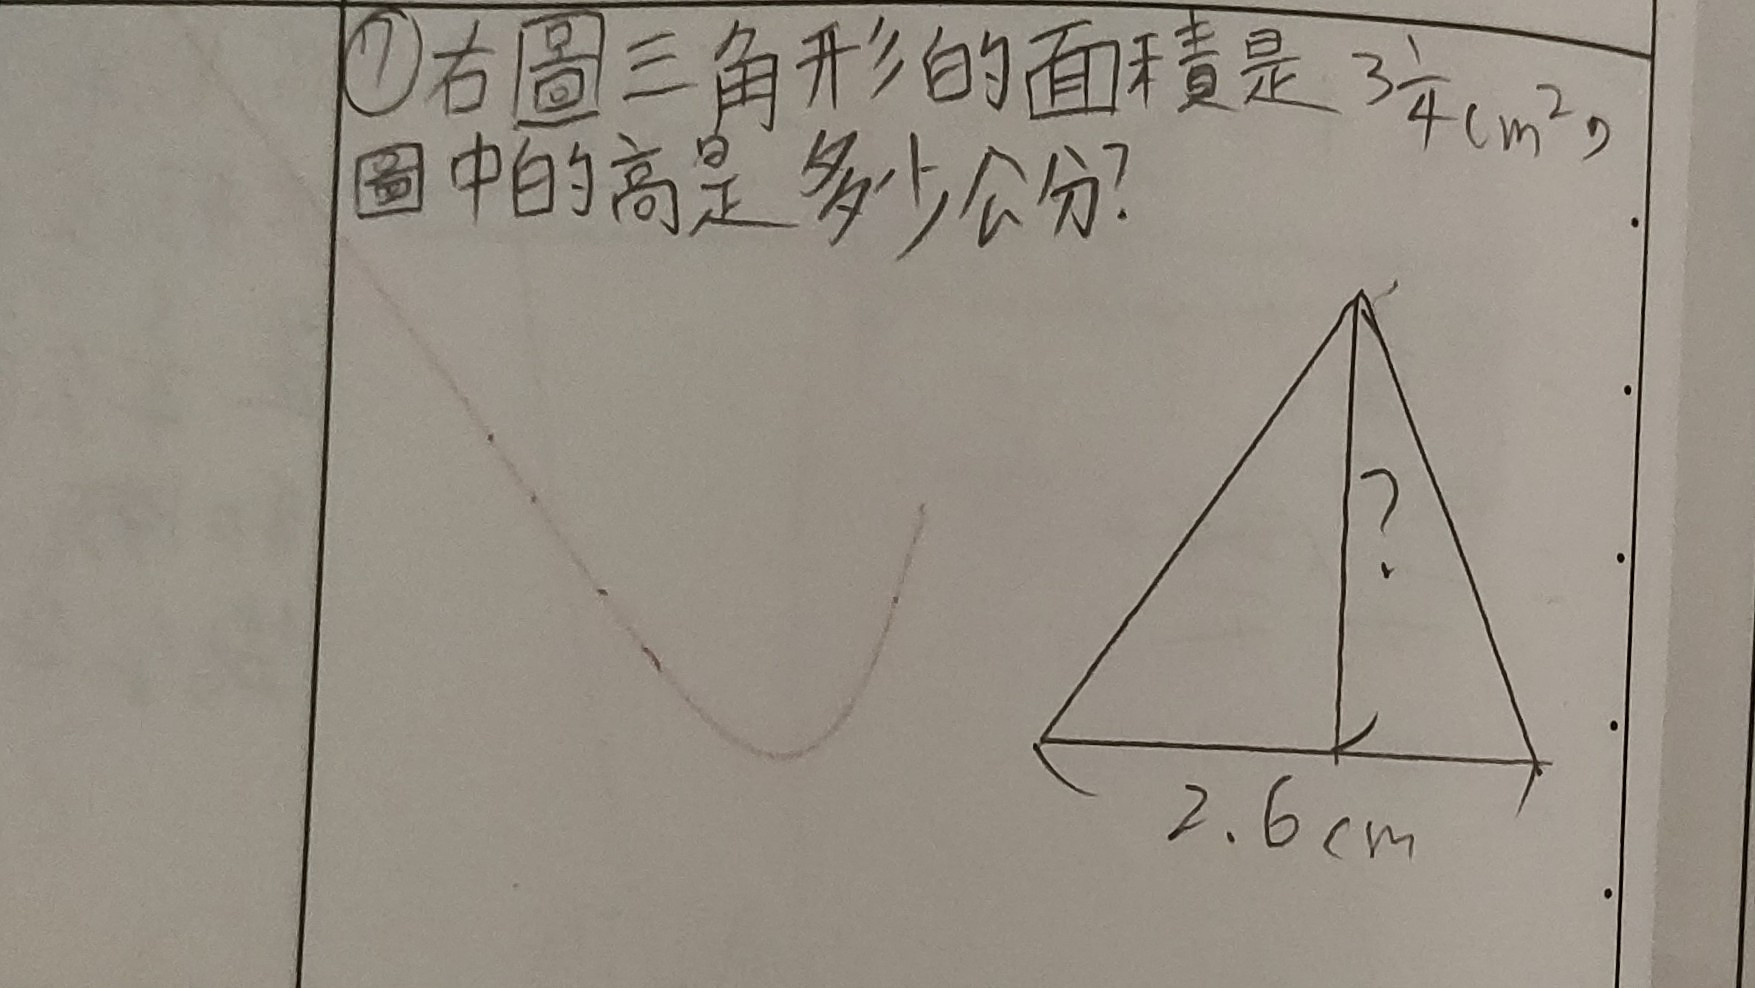 ⑦右圖三角形的面積是 3 1/4 cm²,
圖中的高是多少公分?
?
2.6cm